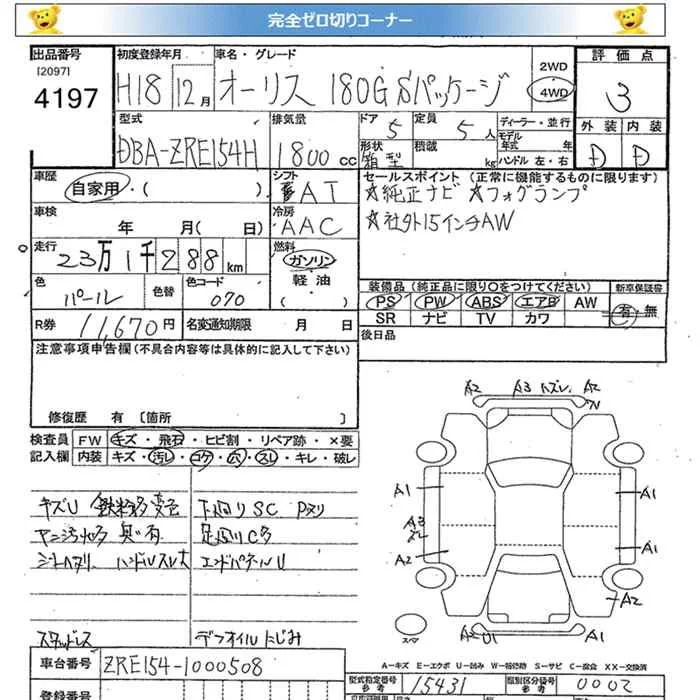 完全ゼロ切りコーナー
出品番号
[2097]
4197
初度登録年月
H18 12月
車名・グレード
オーリス 180G Sパッケージ
2WD
4WD
評価点
3
外装 内装
D D
型式
DBA-ZRE154H
排気量
1800cc
ドア 5
定員 5人
形状 箱型
積載 kg
ディーラー・並行
モデル年式 年
ハンドル 左・右
車歴
自家用・( )
シフト
AT
車検
年 月( 日)
冷房
AAC
セールスポイント (正常に機能するものに限ります)
☆純正ナビ ☆フォグランプ
☆社外15インチAW
走行
23万1千288km
燃料
ガソリン
軽油
( )
色
パール
色替
色コード
070
装備品(純正品に限り○をつけてください)
新車保証書
PS PW ABS エアB AW
SR ナビ TV カワ
有・無
R券 11,670円
名変通知期限 月 日
後日品
注意事項申告欄(不具合内容等は具体的に記入して下さい)
修復歴 有 [箇所 ]
検査員記入欄
FW キズ・飛石・ヒビ割・リペア跡・×要
内装 キズ・汚レ・コゲ・穴・スレ・キレ・破レ
キズU 鉄粉多 変色
ヤニ汚れ多 臭い有
シートヘタリ ハンドルスレ大
下回りSC Pヌリ
足回りC多
エンドパネルU
スタッドレス
デフオイルにじみ
A2 A3 ハズレ A2
A1
A1
A3
A2
A1
A2
スペア
A2 U1
A1
A-キズ E-エクボ U-凹み W-補修跡 S-サビ C-腐食 XX-交換済
車台番号
ZRE154-1000508
型式指定番号
参考
15431
類別区分番号
参考
0002
登録番号